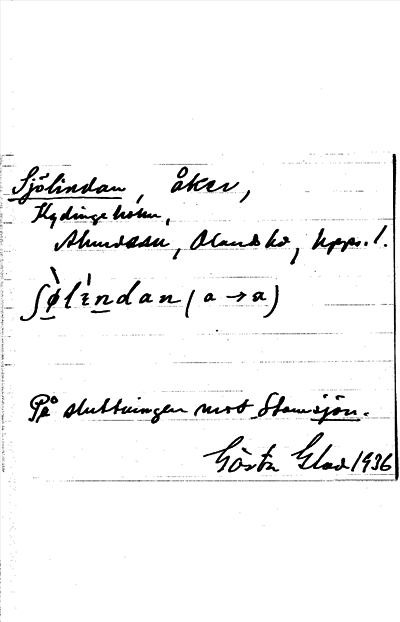 Sjölindan, åker,
Hydingeholm,
Almunge, Olands hd, Upps. l.
ʃølindan (a → a)
På sluttningen mot Stamsjön.
Gösta Glad 1936